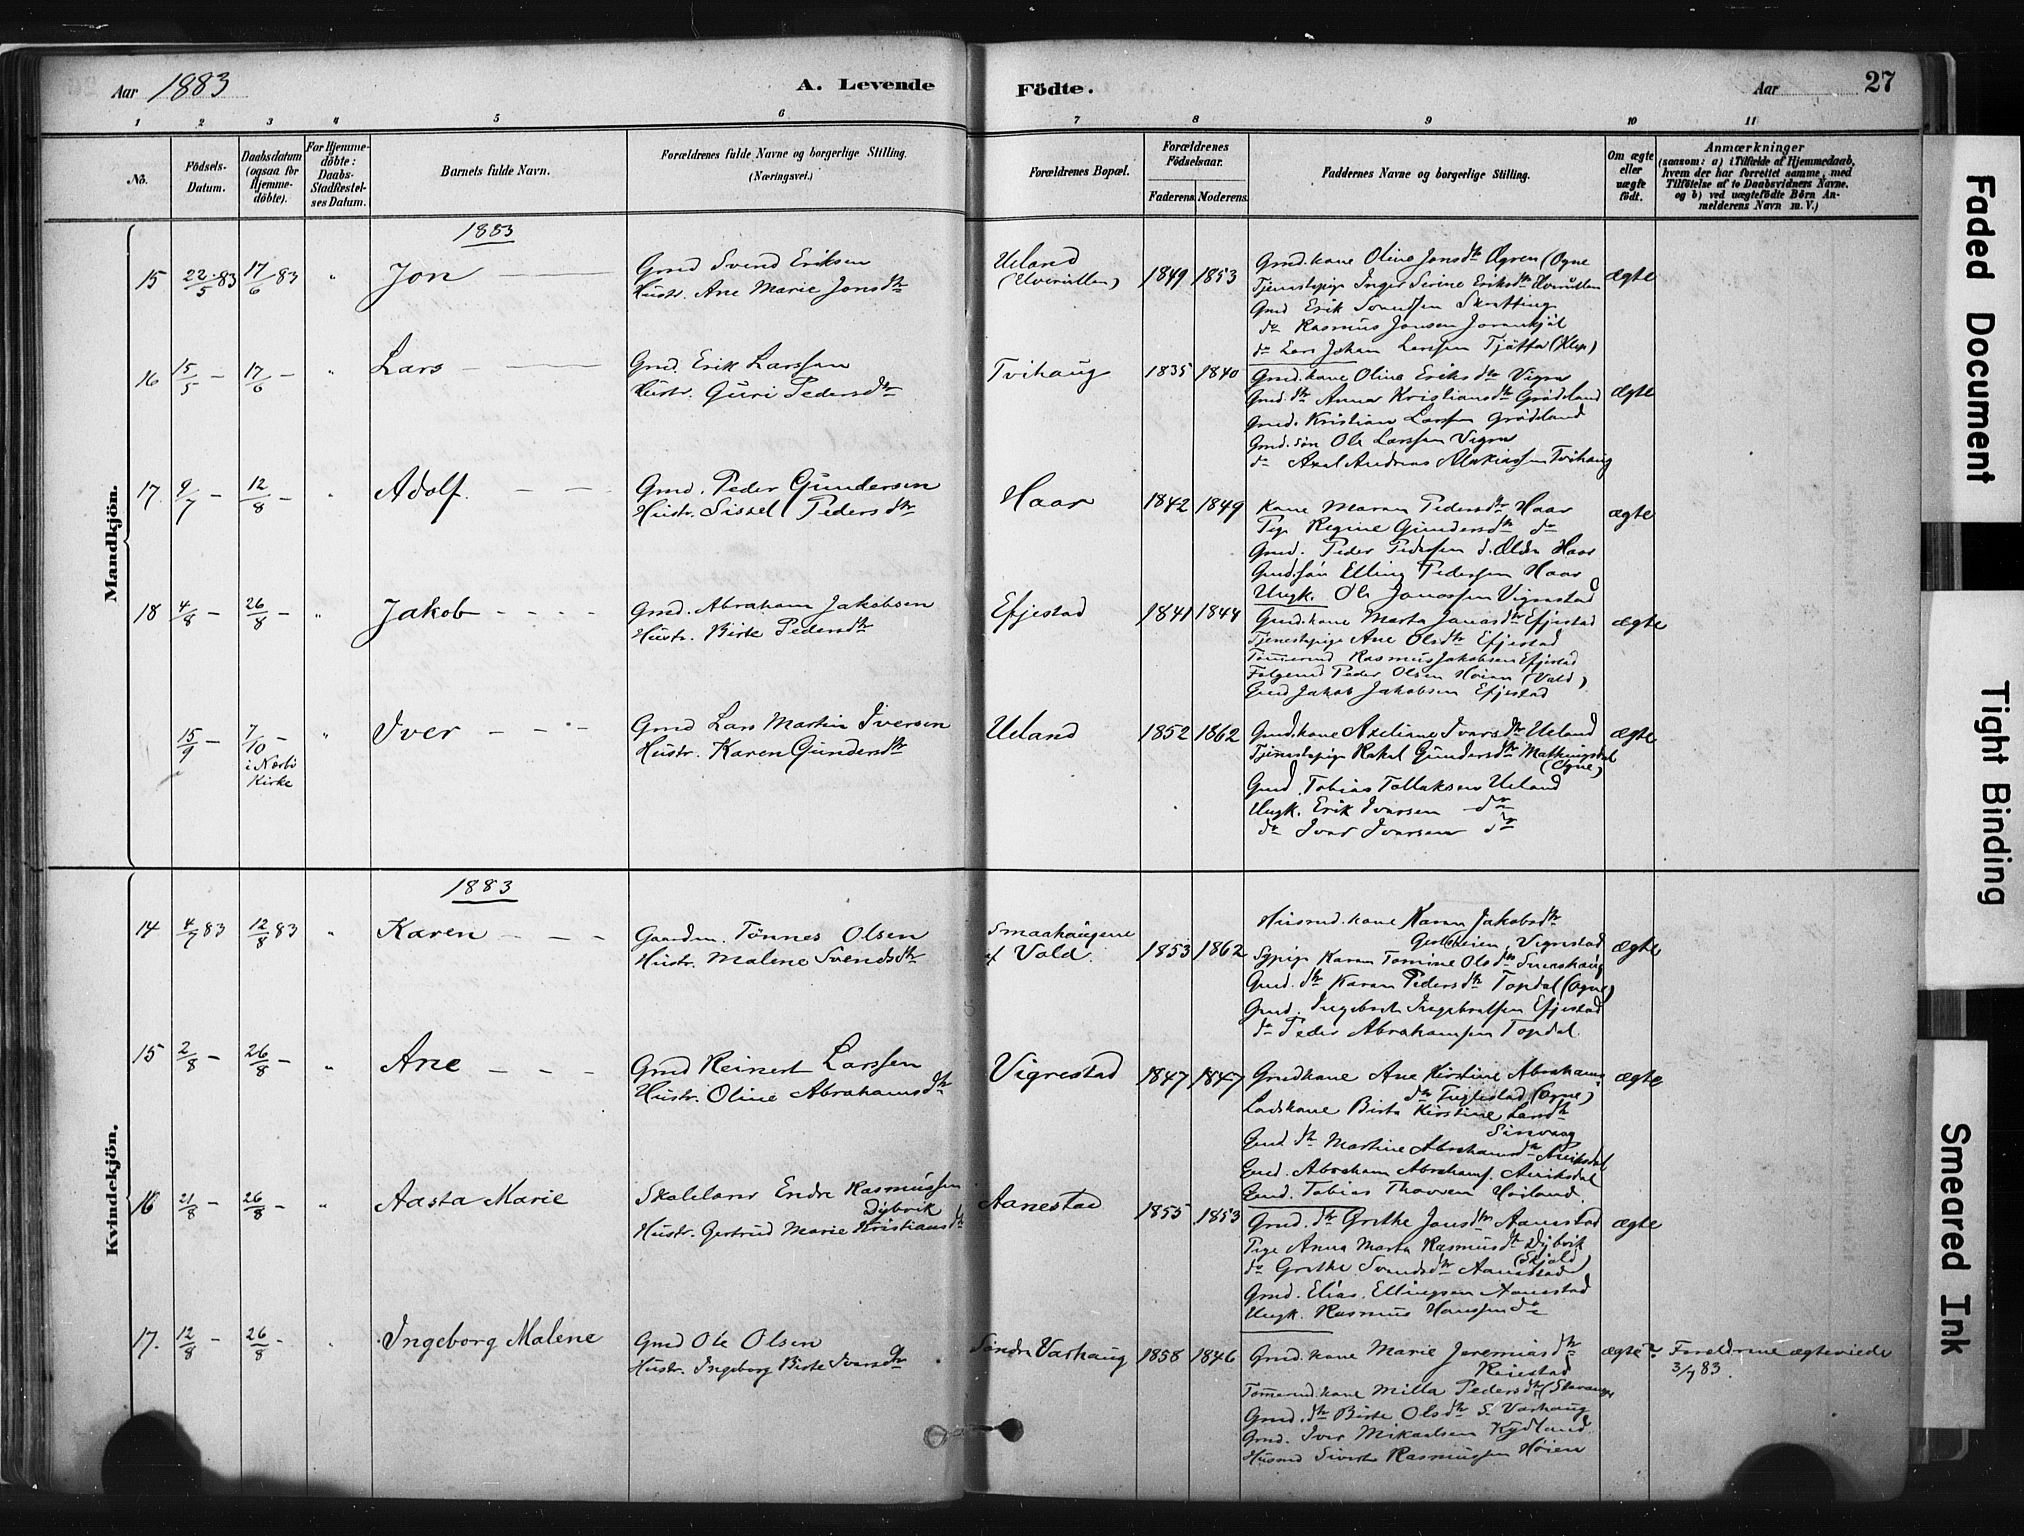 Aar 1883
A. Levende Födte.
Aar 27
1 2 3 4 5 6 7 8 9 10 11
No.
Födsels-Datum.
Daabsdatum (ogsaa for Hjemme-döbte).
For Hjemme-döbte: Daabs-Stadfestel-ses Datum.
Barnets fulde Navn.
Forældrenes fulde Navne og borgerlige Stilling.
(Næringsvei.)
Forældrenes Bopæl.
Forældrenes Födselsaar.
Faderens. Moderens.
Faddernes Navne og borgerlige Stilling.
Om ægte eller uægte födt.
Anmærkninger
(saasom: a) i Tilfælde af Hjemmedaab,
hvem der har forrettet samme, med
Tilföielse af to Daabsvidners Navne.
og b) ved uægtefödte Börn An-
melderens Navn m. V.)
Mandkjön.
1883
15 22/5 83 17/6 83 " Jon
Gmd Svend Eriksen
Hustr. Ane Marie Jonsdtr
Ueland
1849 1853
Gmd. kone Oline Jonsdtr Ogren (Ogne
Tjenestepige Inger Serine Eriksdtr
Gmd Erik Svendsen Skrætting
do Rasmus Jonsen
do Lars Johan Larssen Tjøtta (Klep)
ægte
16 15/5 - 17/6 - " Lars
Gmd. Erik Larssen
Hustr. Guri Pedersdtr
Tvihaug
1835 1840
Gmd. kone Oline Eriksdtr Vigre
Gmd. dtr Anna Kristiansdtr Grødeland
Gmd. Kristian Larssen Grødeland
Gmd. søn Ole Larssen Vigre
do Axel Andreas Tvihaug
ægte
17. 9/7 - 12/8 - " Adolf.
Gmd. Peder Gundersen
Hustr. Sissel Pedersdtr
Haar
1842 1849
Kone Maren Pedersdtr Haar
Pige Regine Gundersdtr do
Gmd. Peder Pedersen d. Ældre Haar
Gmd. søn Elling Pedersen Haar
Ungk. Ole Jonassen Vigrestad
ægte
18 4/8 - 26/8 - " Jakob
Gmd. Abraham Jakobsen
Hustr. Birte Pedersdtr
Efjestad
1841 1844
Gmd. kone Marta Jonasdtr Efjestad
Tjenestepige Ane Olsdtr Efjestad
Tømmermd Rasmus Jakobsen Efjestad
Folgemd Peder Olsen Høien (Vold)
Gmd Jakob Jakobsen Efjestad
ægte
15/9 - 7/10 - i Nærbø Kirke " Iver
Gmd Lars Martin Iversen
Hustr. Karen Gundersdtr
Ueland
1852 1862
Gmd. kone Axeliane Ivarsdtr Ueland
Tjenestepige Rakel Gundersdtr Matningsdal
(Ogne)
Gmd. Tobias Tollaksen Ueland
Ungk. Erik Ivarsen do
do Ivar Ivarsen do
ægte
Kvindekjön.
1883
14 4/7 83 12/8 83 " Karen
Gaardm. Tönnes Olsen
Hustr. Malene Svendsdtr
Smaahaugene
af Vold.
1853 1862
Husmd. kone Karen Jakobsdtr
Vigrestad
Karen Tomine Olsdtr Smaahaug
Gmd. dtr Karen Pedersdtr Topdal (Ogne)
Gmd. Ingebret Ingebretsen Efjestad
do Peder Abrahamsen Topdal.
ægte
15 2/8 - 26/8 - " Ane
Gmd Reinert Larssen
Hustr. Oline Abrahamsdtr
Vigrestad
1847 1847
Gmdkone Ane Kirstine Abrahams
dtr (Ogne)
Ladskone Birte Kirstine Larsdtr
Gmd dtr Martine Abrahamsdtr Aniksdal
Gmd. Abraham Abrahams. Aniksdal
Gmd. Tobias Høiland.
ægte
16 21/8 26/8 " Aasta Marie
Skolelærer Endre Rasmussen
Dybvik
Hustr. Gertrud Marie Kristiansdtr
Aanestad
1855 1853
Gmd. dtr Grethe Jonsdtr Aanestad
Pige Anna Marta Rasmusdtr Dybvik
(Skjold)
do Grethe Svendsdtr Aanestad
Gmd. Elias Ellingsen Aanestad
Ungk. Rasmus Hanssen do
ægte
17. 12/8 - 26/8 - " Ingeborg Malene
Gmd Ole Olsen
Hustr. Ingeborg Birte Iversdtr
Søndre Varhaug
1858 1846
Gmd. kone Marie Jeremiasdtr
Reiestad
Tømmermd. kone Milla Pedersdtr (Stavanger
Gmd. dtr Birte Olsdtr S. Varhaug
Gmd. Iver Mikaelsen Kydland
Husmd Sivert Rasmussen Høien
ægte?
Forældrene ægteviede
3/7 83.
Faded Document
Tight Binding
Smeared Ink